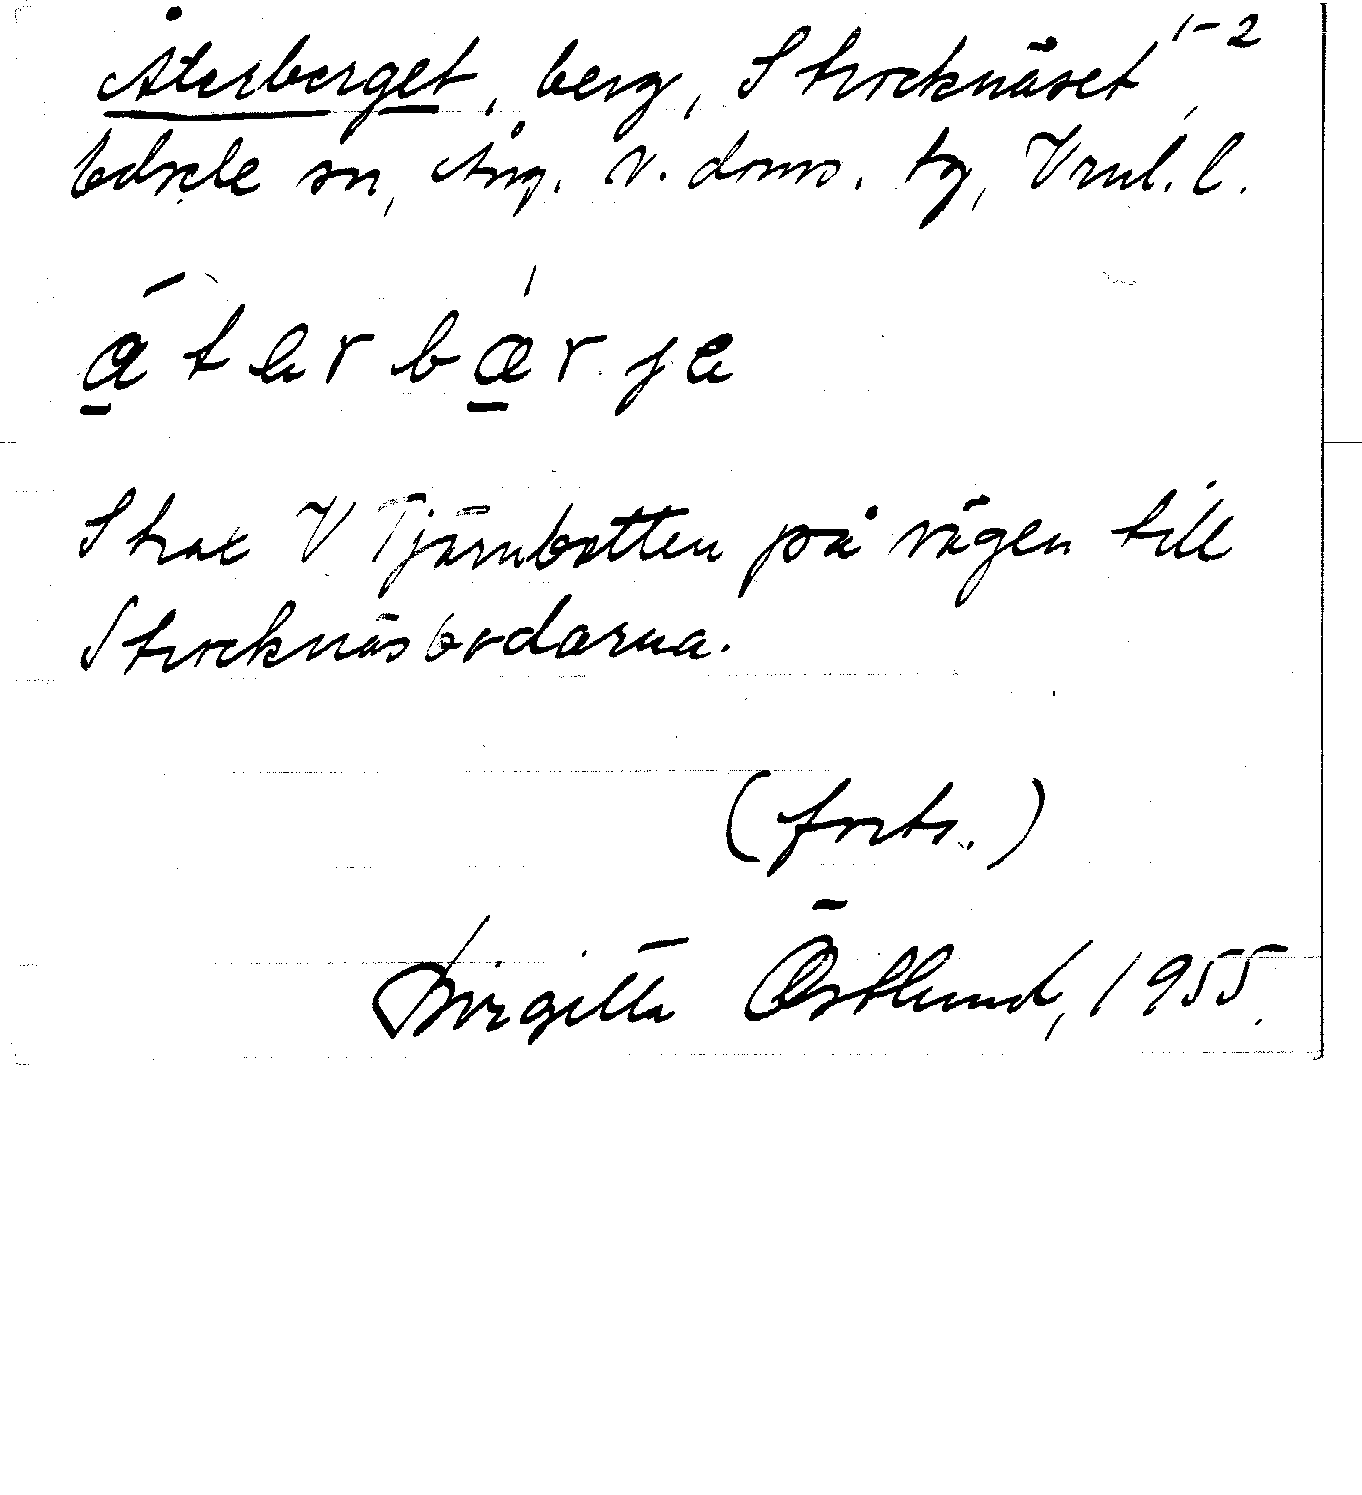 Återberget, berg, Strocknäset 1-2,
Edsele sn, Ång. v. doms. tg, Vnrl. l.
áterbær je
Strax V Tjärnbotten på vägen till
Strocknäsbodarna.
(forts.)
Birgitta Östlund, 1955.